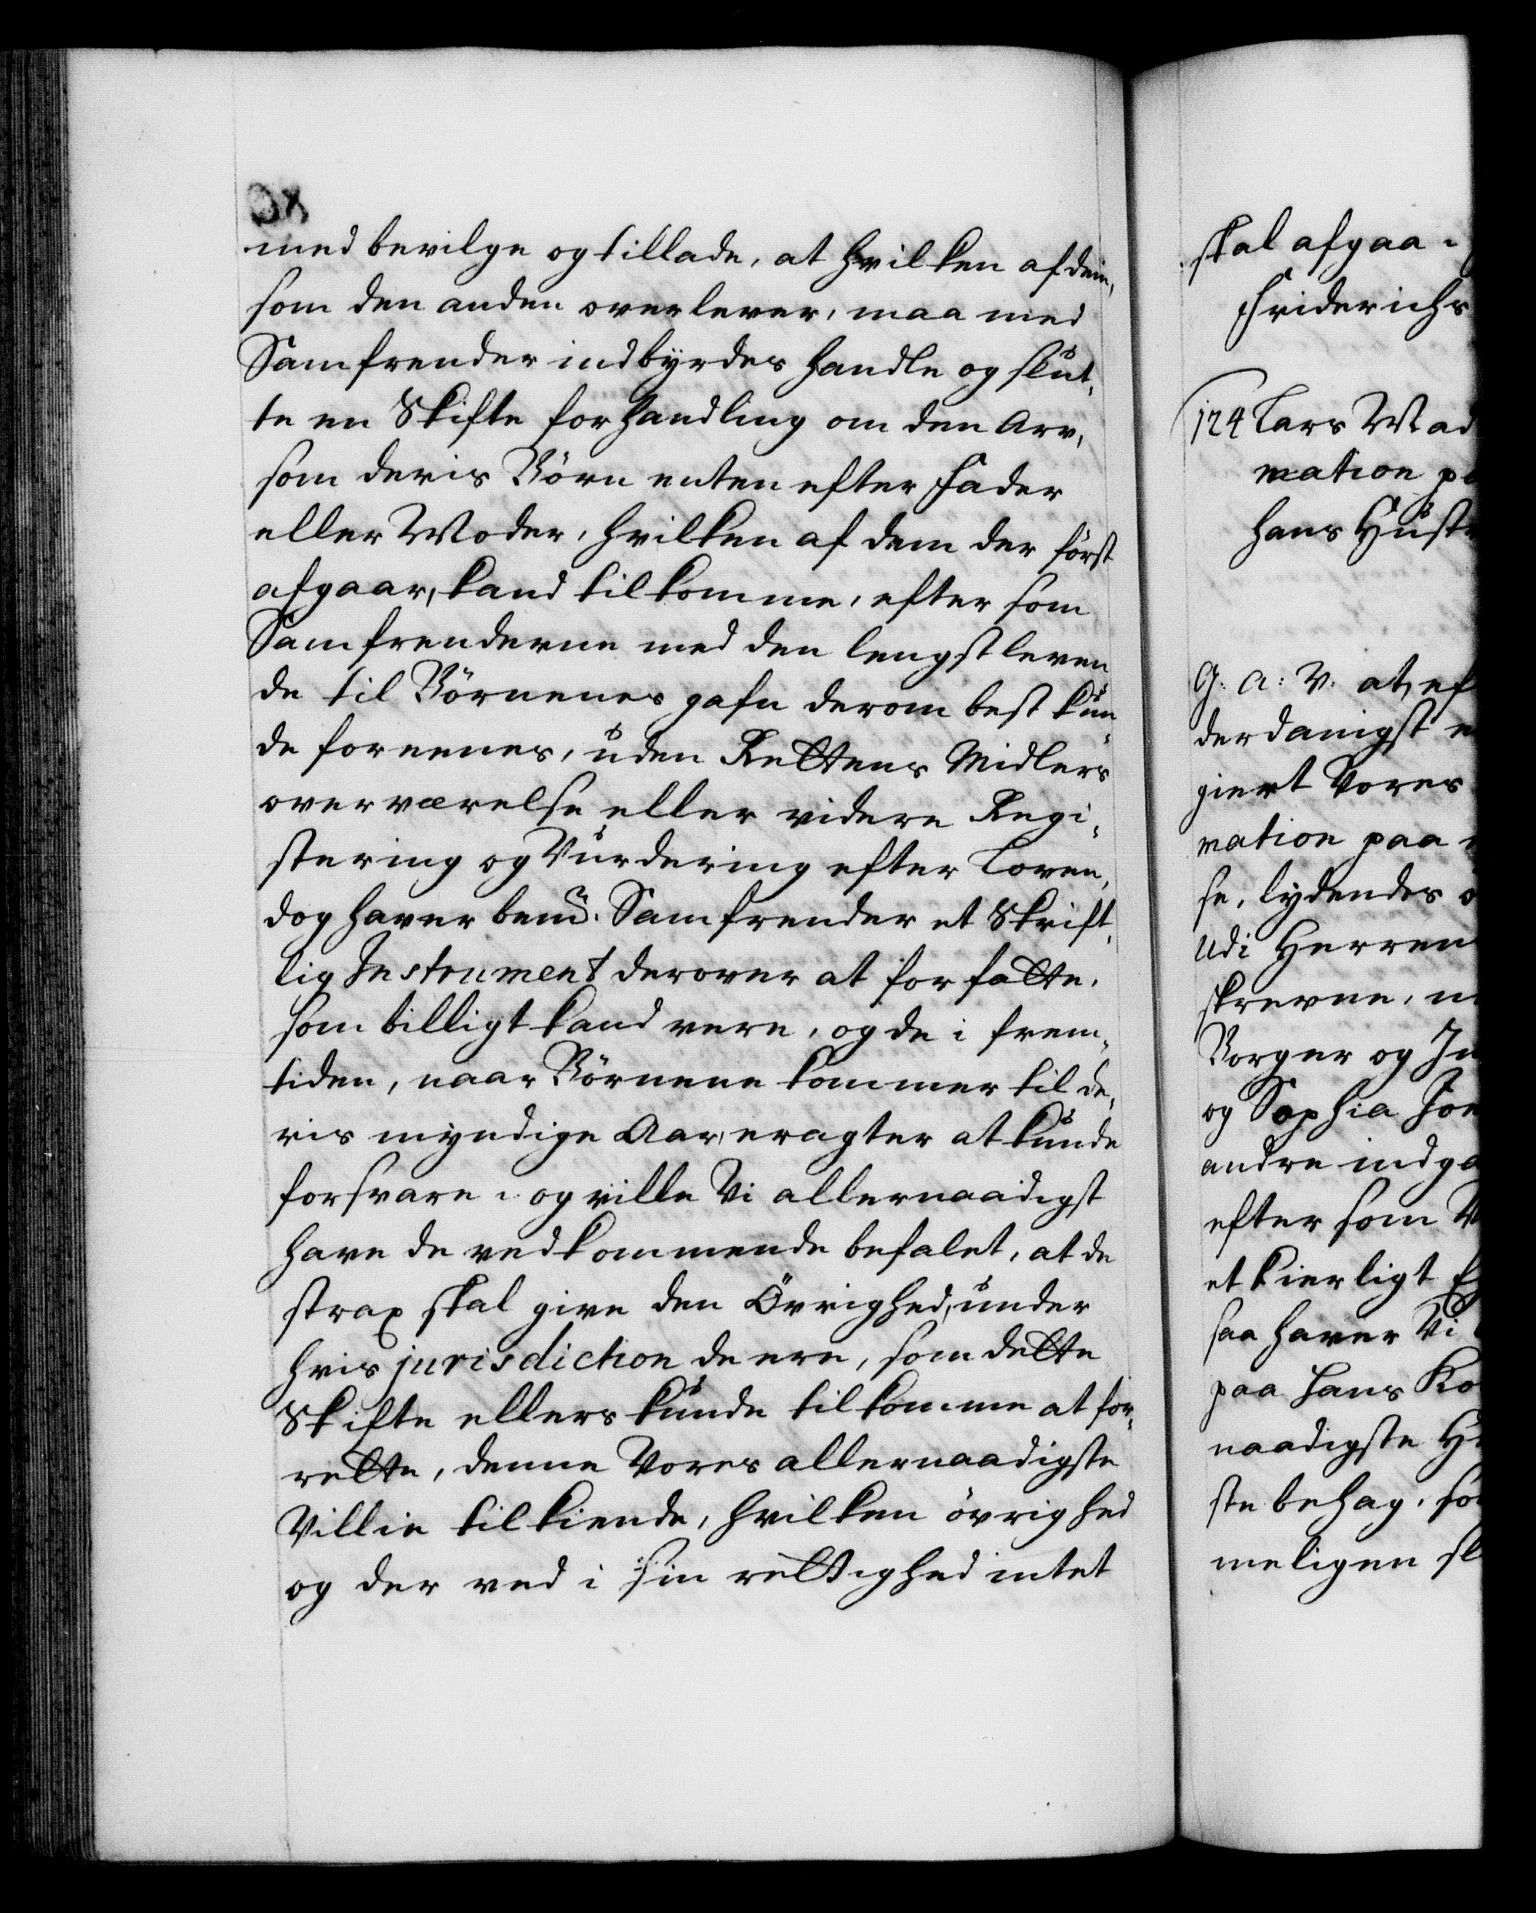 med bevilge og tillade, at hvilken af dem,
som den anden overlever, maa med
Samfrender indbyrdes handle og slut-
te en Skifte forhandling om den Arv,
som deris Börn enten efter Fader
eller Moder, hvilken af dem der först
afgaar, kand tilkomme, efter som
Samfrenderne med den lengstleven
de til Börnenes gafn derom best kun-
de foreenes, uden Rettens Midlers
overværelse eller videre Regi-
stering og Vurdering efter Loven,
dog haver bemt. Samfrender et Skrift-
lig Instrument derover at forfatte,
som billigt kand vere, og de i frem-
tiden, naar Börnene kommer til de-
ris myndige Aar, eragter at kunde
forsvare. og ville Vi allernaadigst
have de vedkommende befalet, at de
strax skal give den Övrighed, under
hvis jurisdiction de ere, som dette
Skifte ellers kunde tilkomme at for-
rette, denne Vores allernaadigste
Villie tilkiende, hvilken övrighed
og der ved i sin rettighed intet
skal afgaa.
Friderichs
124 Lars Mad
mation p
hans Hustr
G: A: V: at, ef
derdanigst
giert Vores
mation paa
se, lydendes o
udi Herren
skrevne,
Borger og In
og Sophia Joe
andre indga
efter som V
et kierligt
saa haver Vi
paa hans Ko
naadigste H
ste behag, so
meligen sl